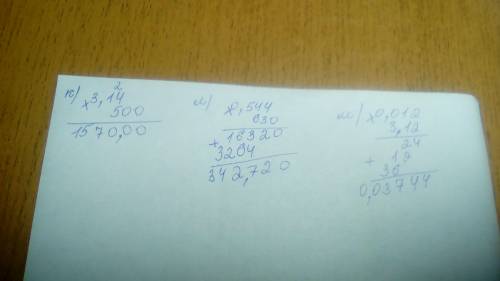 к) × 3,14
2
500
1570,00
л) × 0,544
630
+ 16320
3264
342,720
м) × 0,012
3,12
24
+ 12
36
0,03744